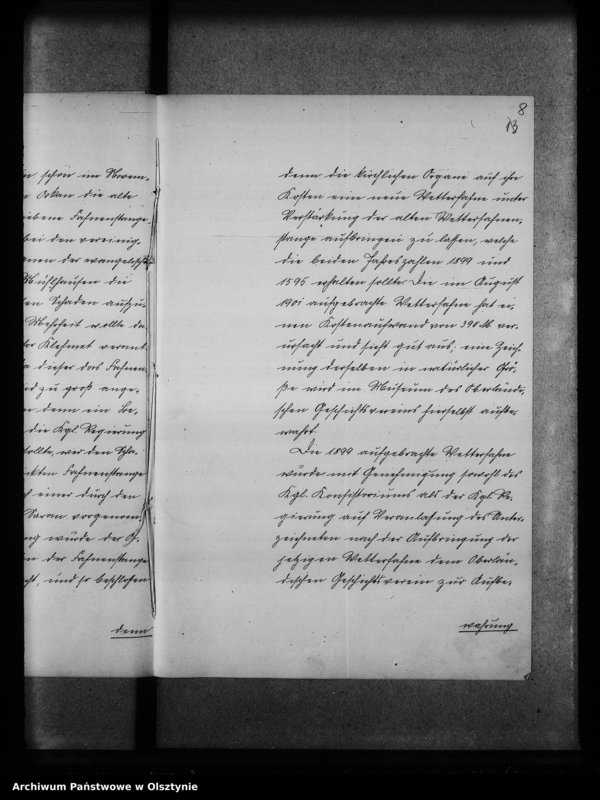 8
13
n schon im Novem-
n Orkan die alte
ebene Fahnenstange
bei den vereinig-
nen der evangelisch
Mühlhausen die
en Schaden aufzu-
Mehrheit wollte da
tor Klehmet verant
dieser das Fahnen
nd zu groß ange-
n denn ein Be-
die Kgl. Regierung
sollte, wer den Scha-
ickten Fahnenstange
ch einer durch den
vorgenom
ng wurde der
n der Fahnenstange
cht, und so beschlossen
denn
denn die kirchlichen Organe auf ihre
Kosten eine neue Wetterfahne unter
Verstärkung der alten Wetterfahnen-
stange aufbringen zu lassen, welche
die beiden Jahreszahlen 1899 und
1595 erhalten sollte. Die im August
1901 aufgebrachte Wetterfahne hat ei-
nen Kostenaufwand von 390 M ver-
ursacht und sieht gut aus; eine Zeich-
nung derselben in natürlicher Grö-
ße wird im Museum des Oberländi-
schen Geschichtsvereins hierselbst aufbe-
wahrt.
Die 1899 aufgebrachte Wetterfahne
wurde mit Genehmigung sowohl des
Kgl. Konsistoriums als der Kgl. Re-
gierung auf Veranlassung des Unter-
zeichneten nach der Aufbringung der
jetzigen Wetterfahne dem Oberlän-
dischen Geschichtsverein zur Aufbe-
wahrung
Archiwum Państwowe w Olsztynie